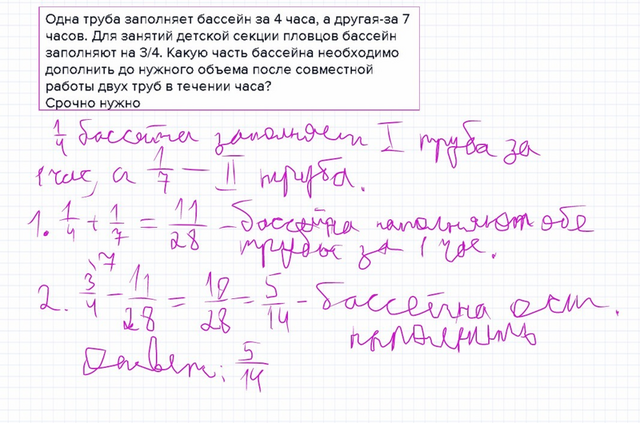 Одна труба заполняет бассейн за 4 часа, а другая-за 7
часов. Для занятий детской секции пловцов бассейн
заполняют на 3/4. Какую часть бассейна необходимо
дополнить до нужного объема после совместной
работы двух труб в течении часа?
Срочно нужно
1/4 бассейна заполняет I труба за
1 час, а 1/7 — II труба.
1. 1/4 + 1/7 = 11/28 – бассейна наполняют обе
трубы за 1 час.
2. 3/4 \7 - 11/28 = 10/28 = 5/14 - бассейна ост.
наполнить
Ответ: 5/14